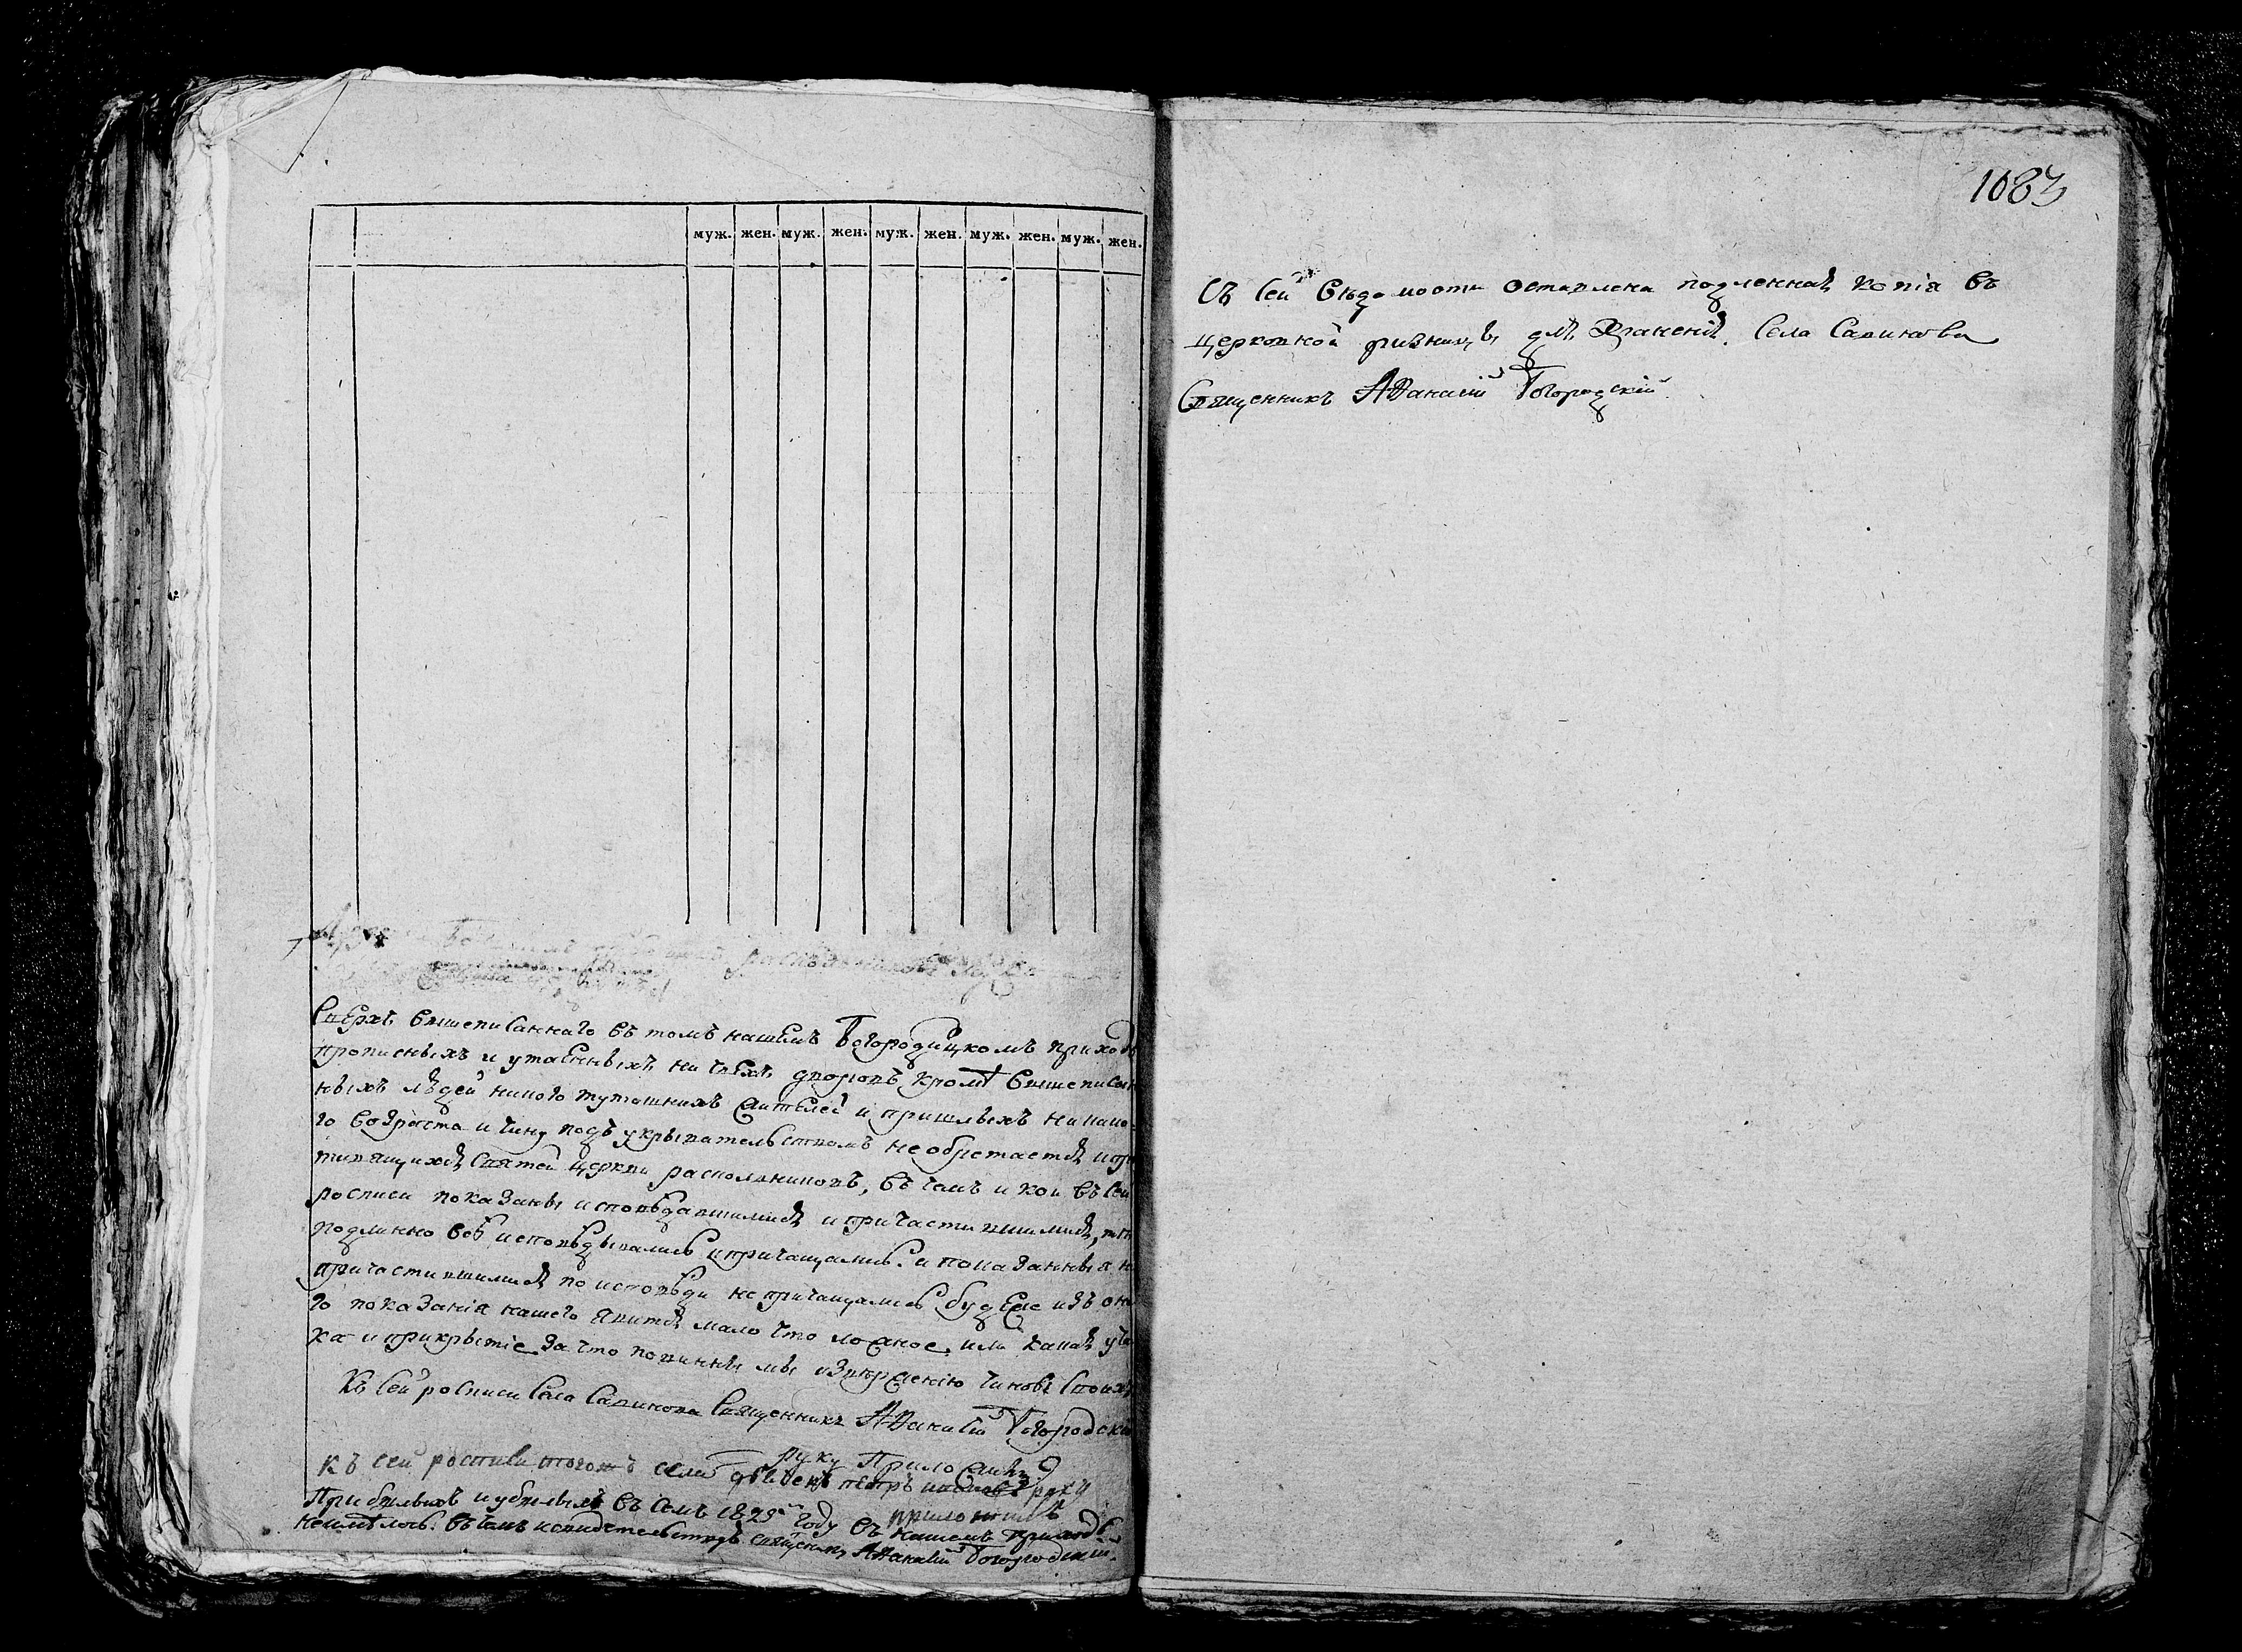 муж. жен. муж. жен. муж. жен. муж. жен. муж. жен.
Сверхъ вышеписаннаго въ томъ нашемъ Богородицкомъ приходѣ
прописныхъ и утаенныхъ ни чьихъ дворовъ, кромѣ вышеписан
ныхъ людей никого тутошнихъ жителей и пришлыхъ никако
го возраста и чину подъ укрывательствомъ необретается и про
тивящихся святей церкви раскольниковъ, въ чемъ и кои въ сей
росписи показаны исповѣдавшимися и причастившимися, тѣ
подлинно всѣ исповѣдывались и причащались. и показанныя не
причастившимися по исповѣди не причащались буде же изъ она
го показанія нашего явится мало что ложное, или какая утай
ка и прикрытіе за что повинны мы изверженію чиновъ своихъ
Къ сей росписи Села Савинова Священникъ Афанасій Богородскій
руку Приложилъ
къ сей росписи тогожъ села дьячекъ петръ руку
приложилъ
Прибылыхъ и убылыхъ въ семъ 1829 году въ нашемъ приходѣ
неимѣлось. въ чемъ и свидетельствуетъ священникъ Афанасій Богородскій.
1083
Съ сей Вѣдомости оставлена подленная копія въ
церковной ризницѣ для храненія. Села Савинова
Священникъ Афанасій Богородскій